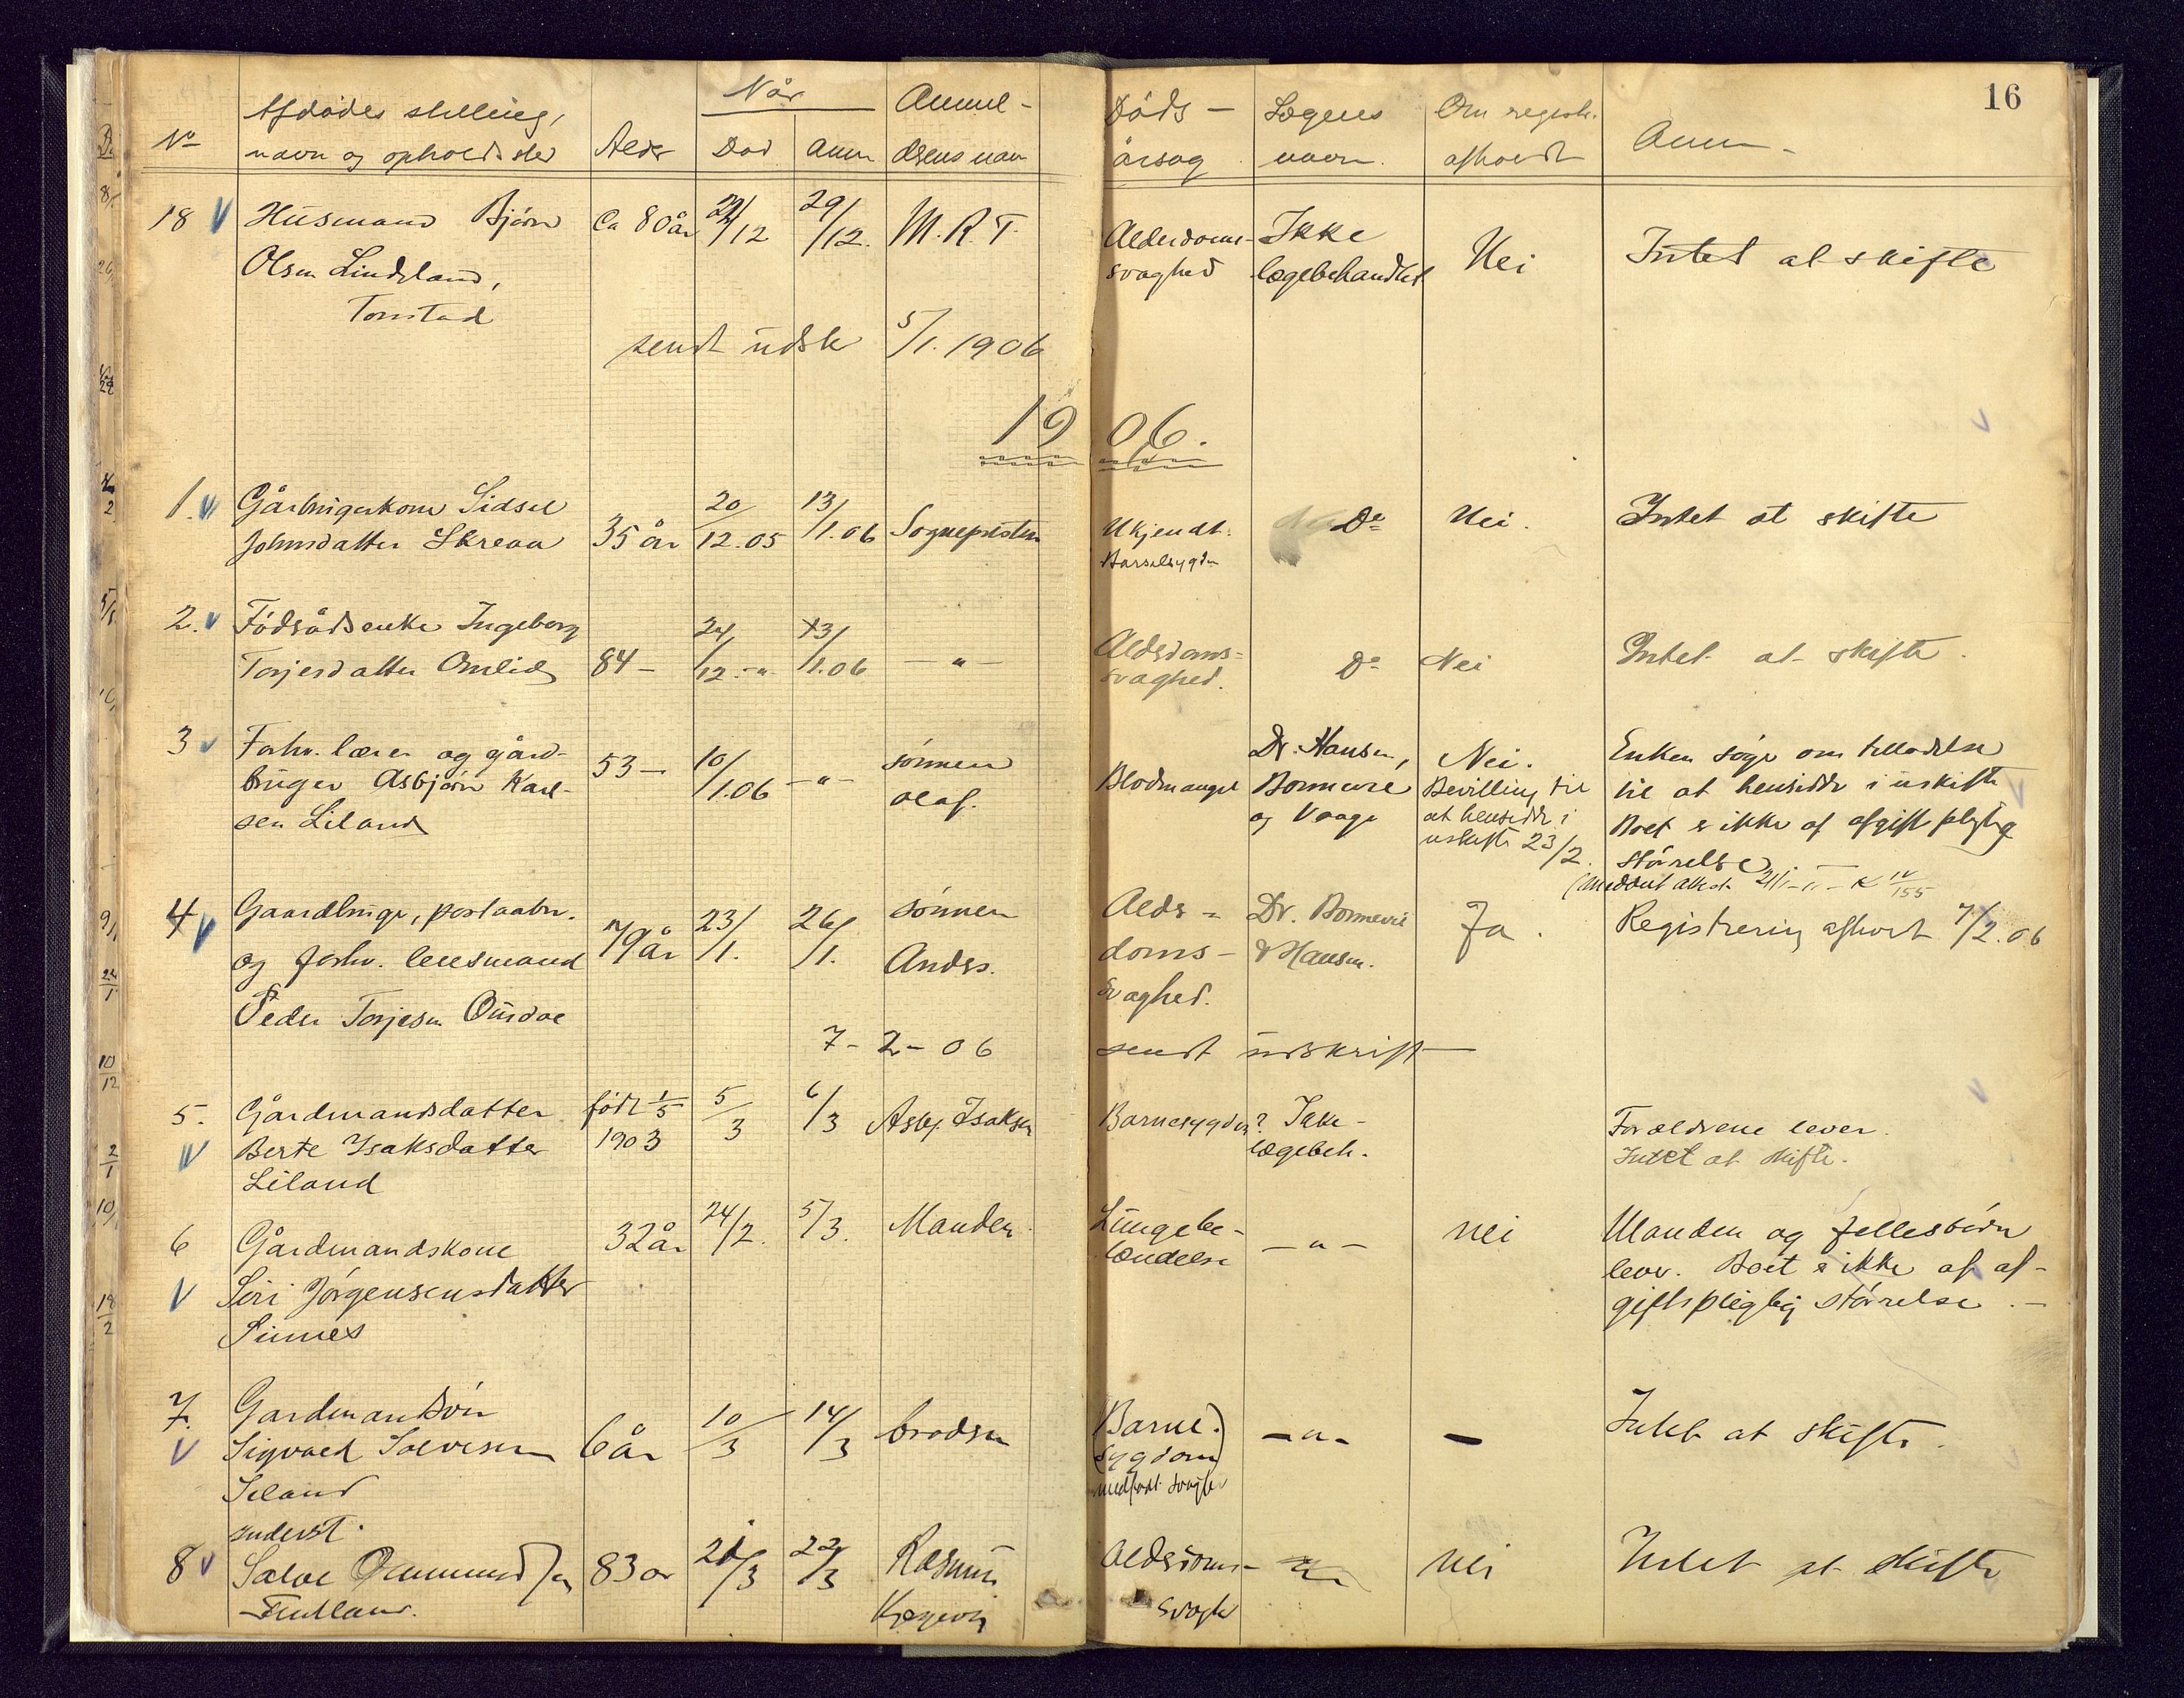 16
No
Afdødes stilling,
navn og opholdssted
Alder
Når
Død
Anm
Anmel-
delsens navn
Døds-
årsag
Lægens
navn.
Om registr.
afholdt
Anm-
18 Husmand Bjørn
Olsen Lindeland,
Tonstad
Ca 80 år
/12
29/12.
M. R. T.
Alderdoms-
svaghed
Ikke
lægebehandlet
Nei
Intet at skifte
sendt udsk 5/1. 1906
1906.
1. Gårbrugerkone Sidsel
Johnsdatter Skreaa
35 år
20/12.05
13/1.06
Sognepresten
Ukjendt.
Barselsygdom
Do
Nei.
Intet at skifte
2. Fødrådsenke Ingeborg
Torjesdatter Omlid
84 -
24/12. -"-
13/1.06
-"-
Alderdoms-
svaghed.
Do
Nei
Intet at skifte.
3 Forhv. lærer og gård-
bruger Asbjørn Karl-
sen Liland
53 -
10/1.06
-"-
sønnen
Olaf.
Blodmangel
Dr. Hansen,
Bonnevie
og Vaage
Nei.
Bevilling til
at hensidde i
uskifte 23/2.
Enken søger om tilladelse
til at hensidde i uskifte
Boet er ikke af afgiftspligtig
størrelse
4 Gaardbruger, postaabn.
og forhv. lensmand
Peder Torjesen Ousdal
79 år
23/1.
26/1.
sønnen
Anders.
Alder-
doms-
svaghed.
Dr. Bonnevie
& Hansen.
Ja.
Registrering afholdt 7/2.06
7-2-06 sendt udskrift
5. Gårdmandsdatter
Berte Isaksdatter
Liland
født 1/5
1903
5/3
6/3
Asbj. Isaksen
Barnesygdom?
Ikke-
lægebeh.
Forældrene lever.
Intet at skifte.
6 Gårdmandskone
Siri Jørgensensdatter
Sinnes
32 år
24/2.
5/3.
Manden.
Lungebe-
tændelse
-"-
Nei
Manden og fellesbørn
lever. Boet er ikke af af-
giftspligtig størrelse.-
7. Gardmandsøn
Sigvald Salvesen
Seland
6 år
10/3
14/3
broderen
Barne.
sygdom)
medfødt svaghed
-"-
-
Intet at skifte.
Inderst.
8 Salve Ommundsen
83 år
/3
22/3
Rasmus
Alderdoms-
svagh
Nei
Intet at skifte